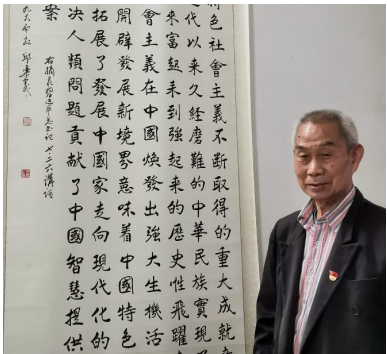 特色社會主義不斷取得的重大成就
代以來久經磨難的中華民族實現了
來富起來到強起來的歷史性飛躍
會主義在中國煥發出強大生機活
開辟發展新境界意味着中國特色
拓展了發展中國家走向現代化的
決人類問題貢獻了中國智慧提供
案
右摘自習近平總書記七二六講話